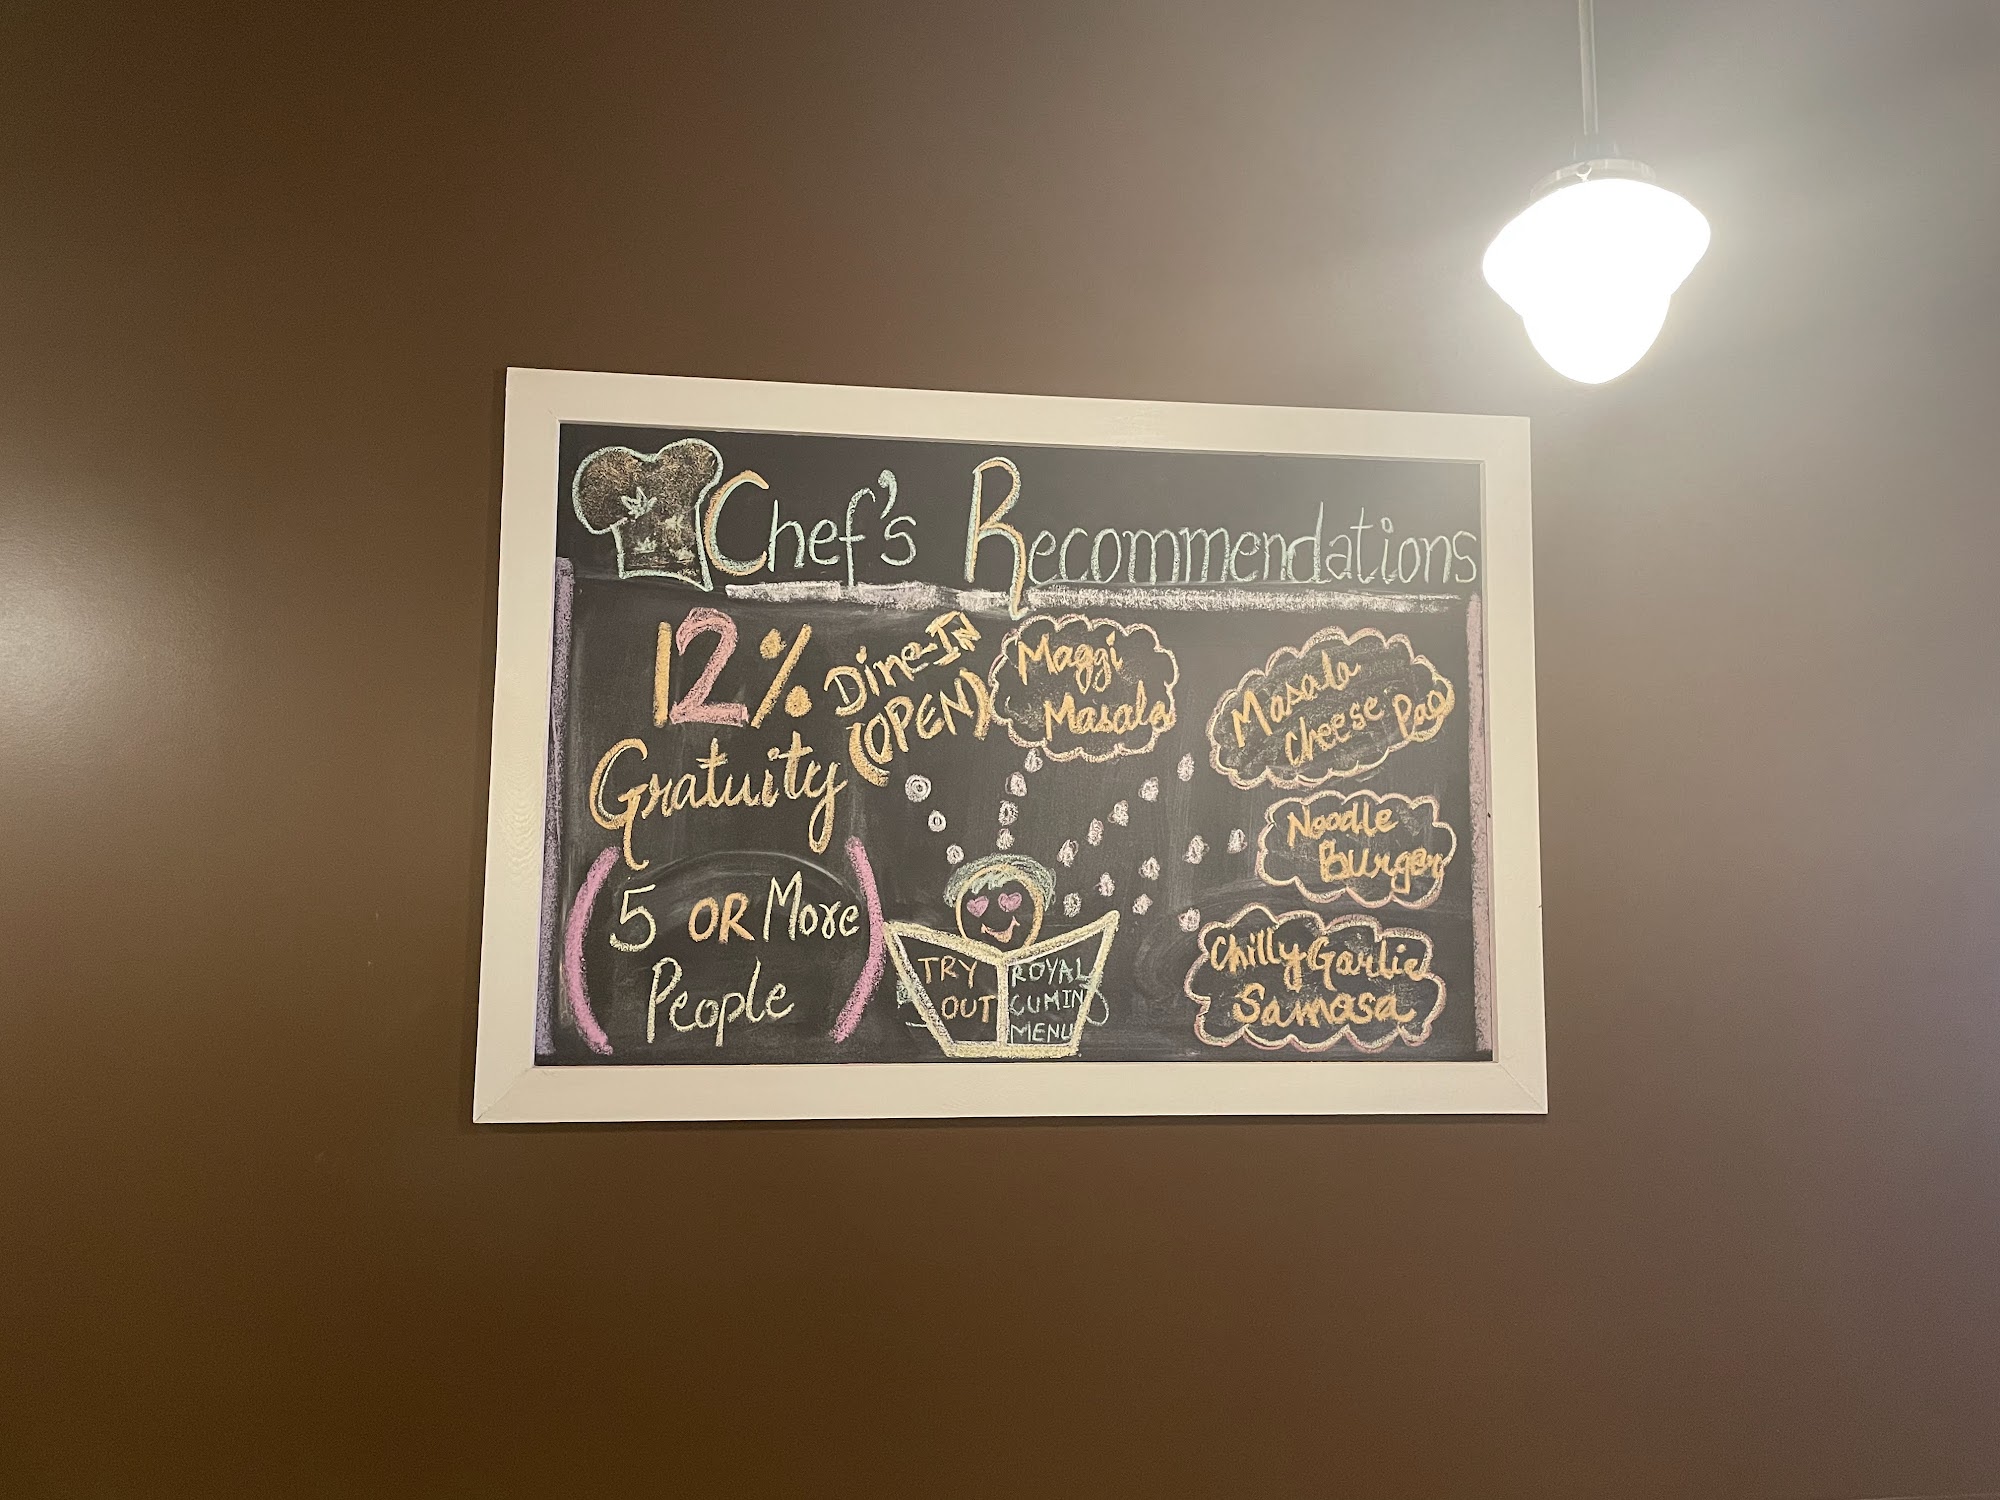 Chef's Recommendations
12%
Gratuity
(5 OR More
People)
Dine-IN
(OPEN)
Maggi
Masala
Masala
Cheese Pao
Noodle
Burger
Chilly Garlic
Samosa
TRY
OUT
ROYAL
CUMIN
MENU